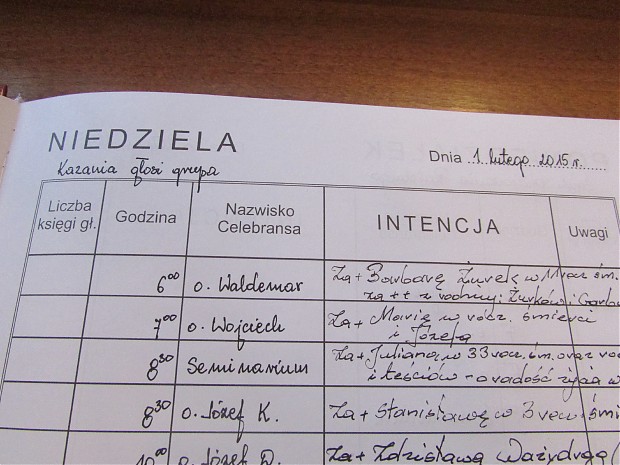 NIEDZIELA
Dnia 1 lutego 2015 r.
Kazania głosi grupa
Liczba księgi gł. Godzina Nazwisko Celebransa INTENCJA Uwagi
6⁰⁰ o. Waldemar Za + Barbarę Żurek w 11 rocz. śm.
za ++ z rodziny: Żurków i
7⁰⁰ o. Wojciech Za + Marię w rocz. śmierci
i Józefa
8³⁰ Seminarium Za + Juliana w 33 rocz. śm. oraz
i teściów - o radość życia w
8³⁰ o. Józef K. Za + Stanisławę w 3 rocz.
10⁰⁰ o. Józef D. Za + Zdzisława